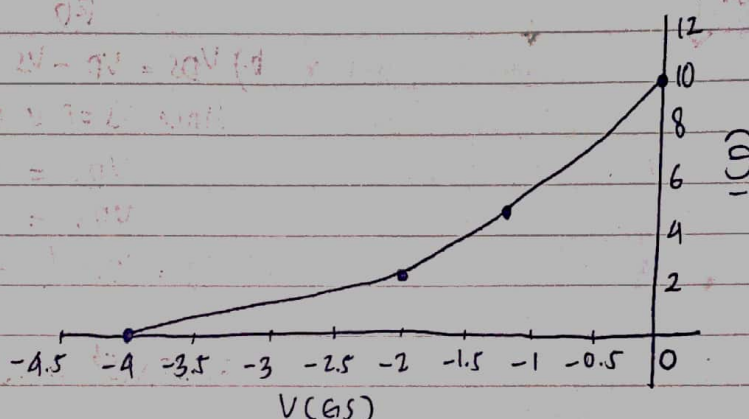 12
10
8
6
4
2
I(D)
-4.5 -4 -3.5 -3 -2.5 -2 -1.5 -1 -0.5 0
V(GS)